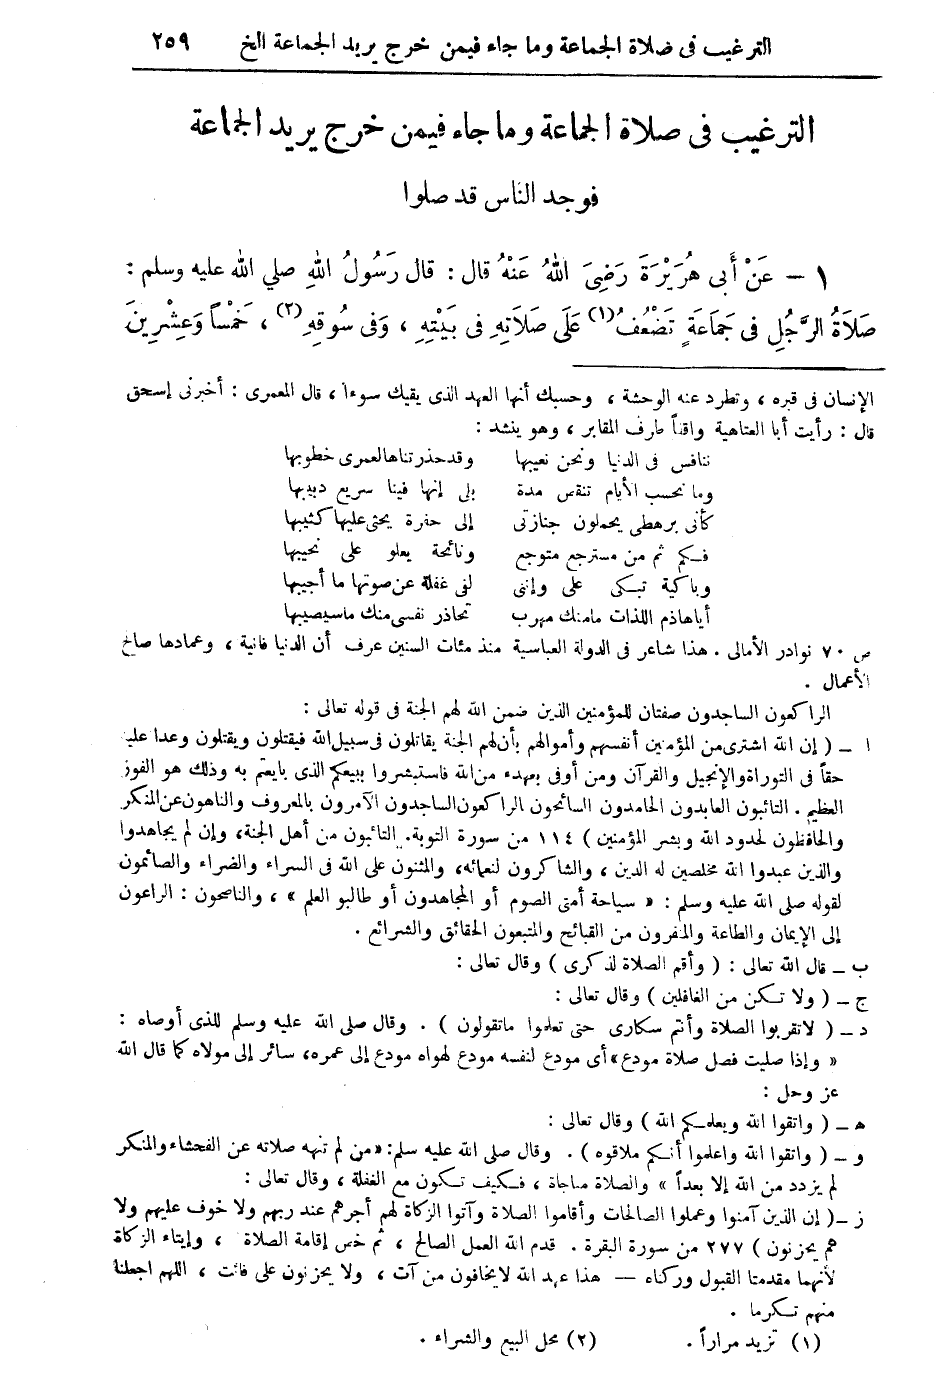 الترغيب فى صلاة الجماعة وما جاء فيمن خرج يريد الجماعة الخ ٢٥٩
الترغيب فى صلاة الجماعة وما جاء فيمن خرج يريد الجماعة
فوجد الناس قد صلوا
١ — عَنْ أَبِى هُرَيْرَةَ رَضِىَ اللهُ عَنْهُ قال : قال رَسُولُ اللهِ صلي الله عليه وسلم :
صَلَاةُ الرَّجُلِ فى جَمَاعَةٍ تَضْعُفُ(١) عَلَى صَلَاتِهِ فى بَيْتِهِ ، وَفى سُوقِهِ(٢) ، خَمْسًا وَعِشْرِينَ
الإنسان فى قبره ، وتطرد عنه الوحشة ، وحسبك أنها العهد الذى يقيك سوءاً ، قال المعمرى : أخبرنى إسحق
قال : رأيت أبا العتاهية واقفاً طرف المقابر ، وهو ينشد :
ننافس فى الدنيا ونحن نعيبها وقد حذرتناها لعمرى خطوبها
وما نحسب الأيام تنقص مدة بلى إنها فينا سريع دبيبها
كأنى برهطى يحملون جنازتى إلى حفرة يحثى عليها كثيبها
فكم ثم من مسترجع متوجع ونائحة يعلو على نحيبها
وباكية تبكى على وإننى لفى غفلة عن صوتها ما أجيبها
أيا هاذم اللذات مامنك مهرب تحاذر نفسى منك ماسيصيبها
ص ٧٠ نوادر الأمالى . هذا شاعر فى الدولة العباسية منذ مئات السنين عرف أن الدنيا فانية ، وعمادها صالح
الأعمال .
الراكعون الساجدون صفتان للمؤمنين الذين ضمن الله لهم الجنة فى قوله تعالى :
ا — ( إن الله اشترى من المؤمنين أنفسهم وأموالهم بأن لهم الجنة يقاتلون فى سبيل الله فيقتلون ويقتلون وعدا عليه
حقاً فى التوراة والإنجيل والقرآن ومن أوفى بعهده من الله فاستبشروا ببيعكم الذى بايعتم به وذلك هو الفوز
العظيم . التائبون العابدون الحامدون السائحون الراكعون الساجدون الآمرون بالمعروف والناهون عن المنكر
والحافظون لحدود الله وبشر المؤمنين ) ١١٤ من سورة التوبة. التائبون من أهل الجنة، وإن لم يجاهدوا
والذين عبدوا الله مخلصين له الدين ، والشاكرون لنعمائه، والمثنون على الله فى السراء والضراء والصائمون
لقوله صلى الله عليه وسلم : « سياحة أمتى الصوم أو المجاهدون أو طالبو العلم » ، والناصحون : الراعون
إلى الإيمان والطاعة والمنفرون من القبائح والمتبعون الحقائق والشرائع .
ب — قال الله تعالى : ( وأقم الصلاة لذكرى ) وقال تعالى :
ج — ( ولا تكن من الغافلين ) وقال تعالى :
د — ( لاتقربوا الصلاة وأنتم سكارى حتى تعلموا ماتقولون ) . وقال صلى الله عليه وسلم للذى أوصاه :
« وإذا صليت فصل صلاة مودع» أى مودع لنفسه مودع لهواه مودع إلى عمره، سائر إلى مولاه كما قال الله
عز وجل :
ه — ( واتقوا الله ويعلمكم الله ) وقال تعالى :
و — ( واتقوا الله واعلموا أنكم ملاقوه ) . وقال صلى الله عليه سلم: «من لم تنهه صلاته عن الفحشاء والمنكر
لم يزدد من الله إلا بعداً » والصلاة مناجاة ، فكيف تكون مع الغفلة ، وقال تعالى :
ز — ( إن الذين آمنوا وعملوا الصالحات وأقاموا الصلاة وآتوا الزكاة لهم أجرهم عند ربهم ولا خوف عليهم ولا
هم يحزنون ) ٢٧٧ من سورة البقرة . قدم الله العمل الصالح ، ثم خص إقامة الصلاة ، وإيتاء الزكاة
لأنهما مقدمتا القبول وركناه — هذا عهد الله لايخافون من آت ، ولا يحزنون على فائت ، اللهم اجعلنا
منهم تكرما .
(١) تزيد مراراً . (٢) محل البيع والشراء .